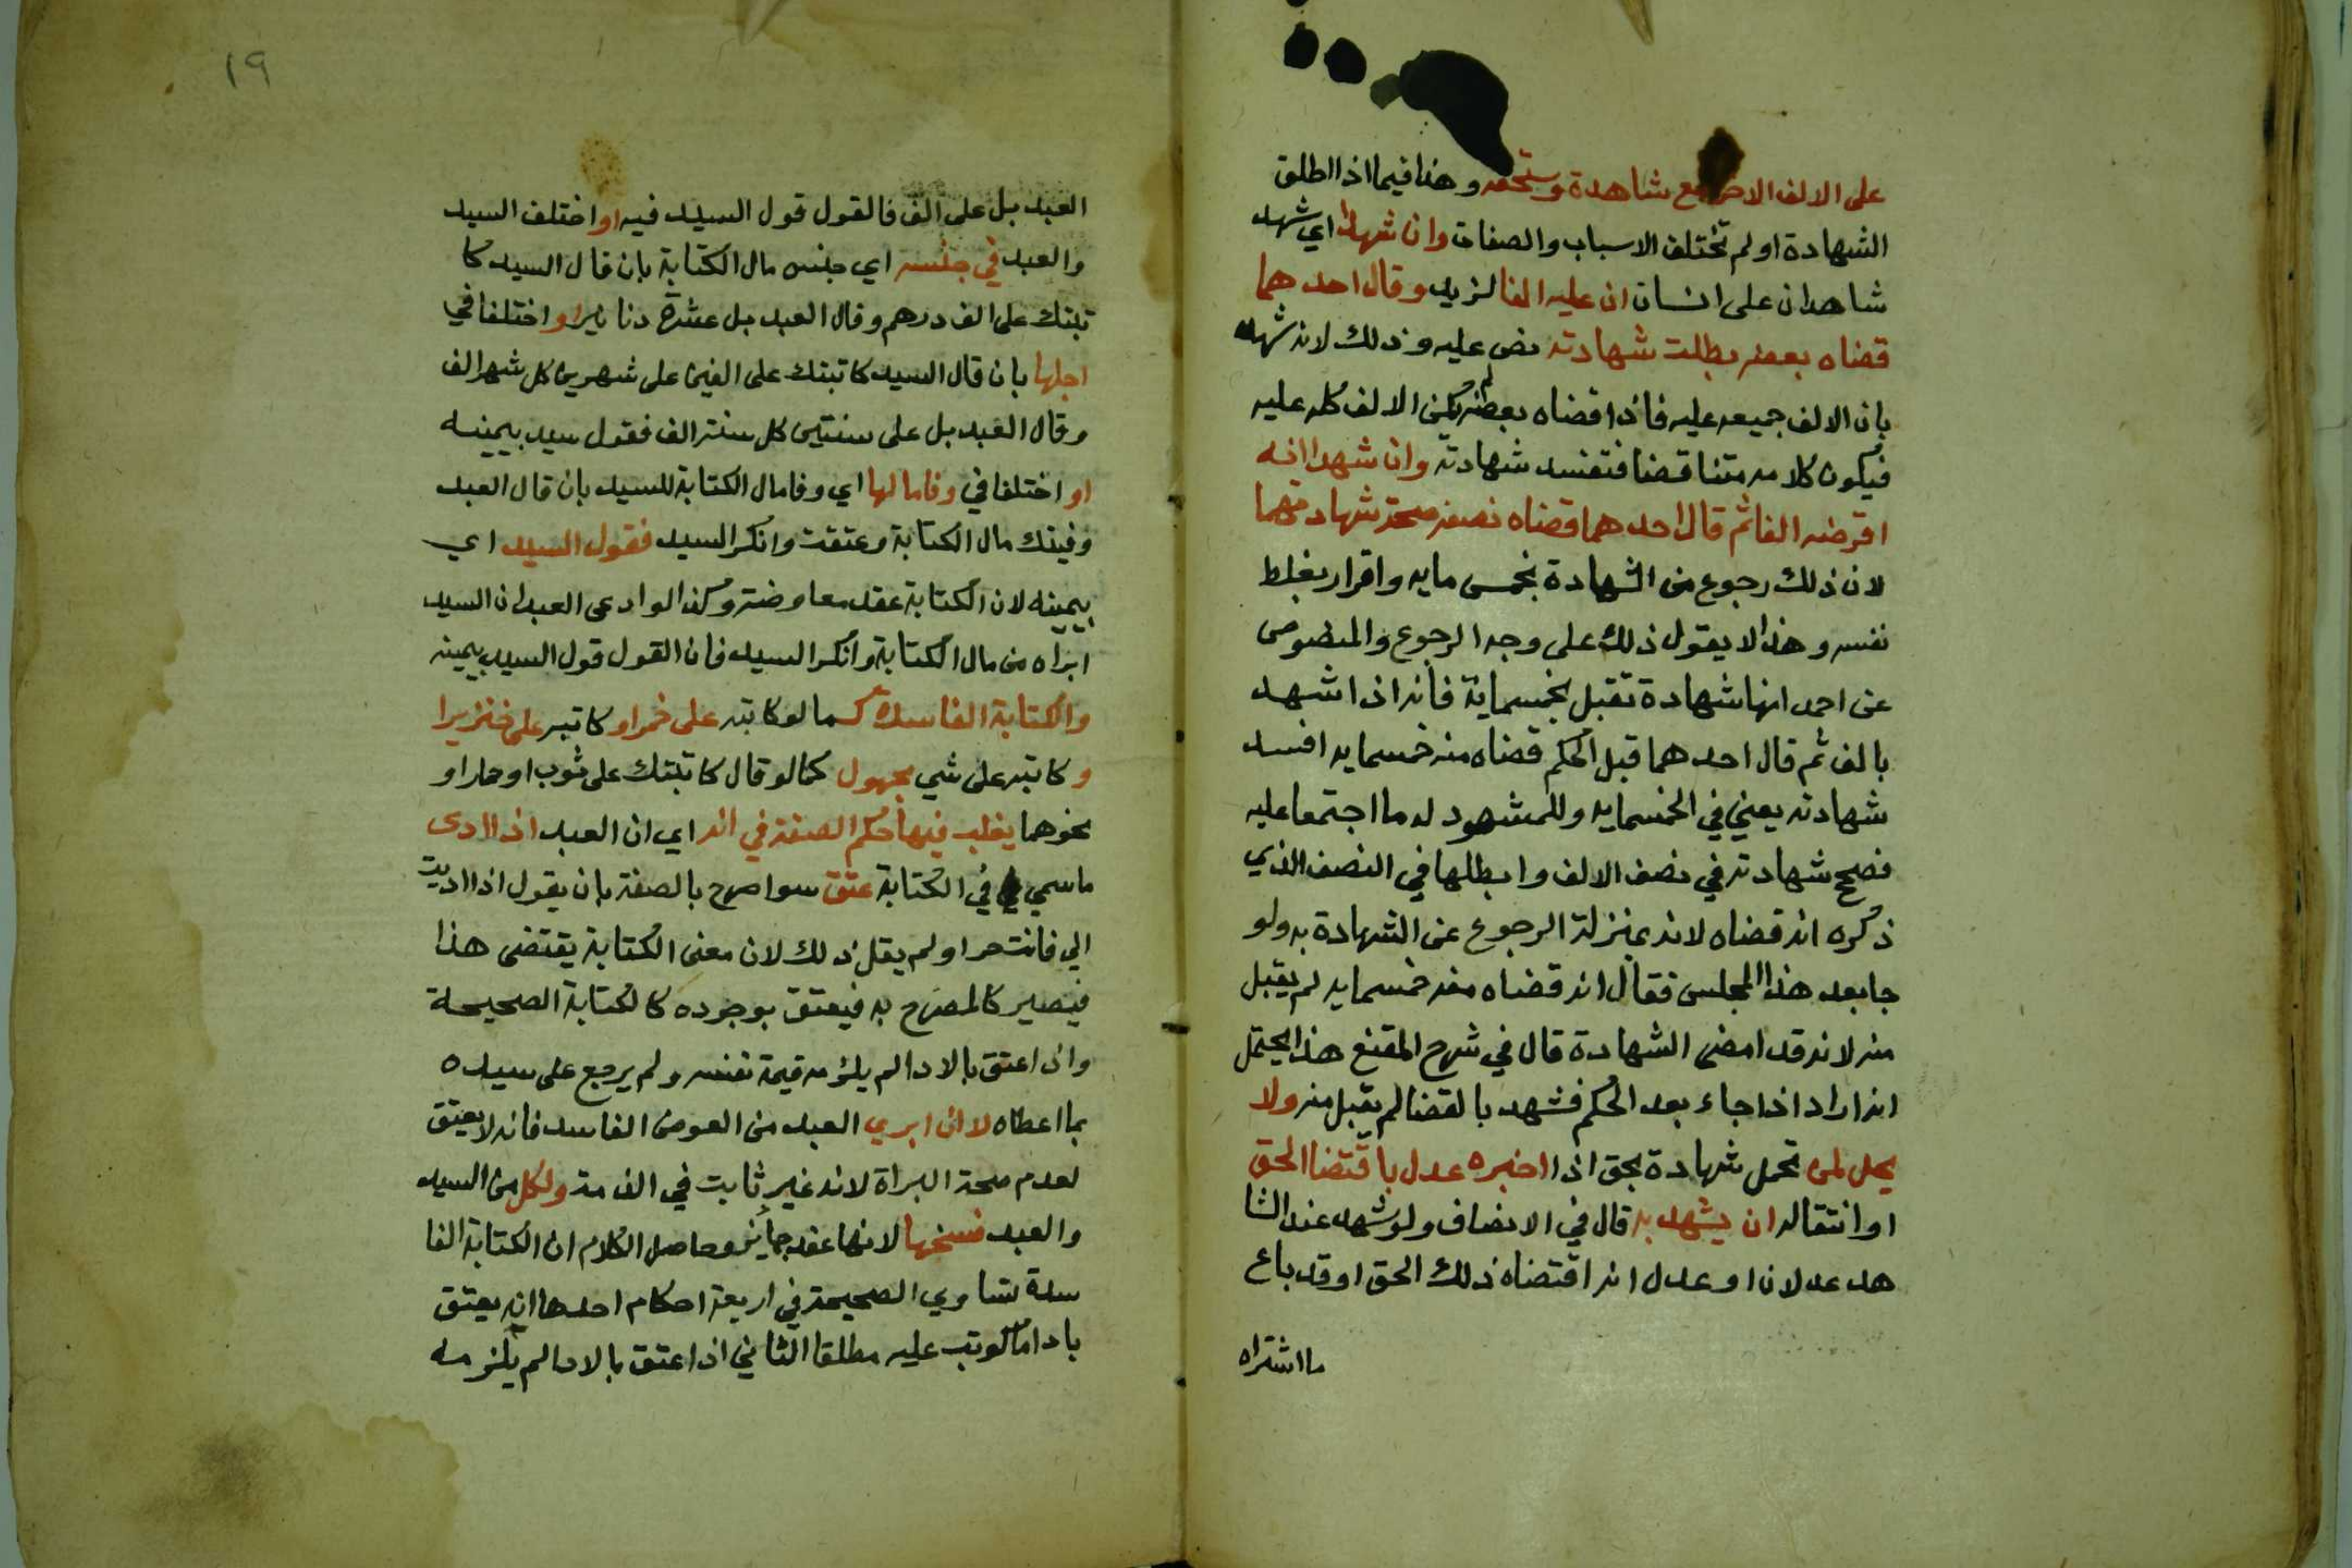 على الالف الاخر مع شاهدة ويستحقه وهذا فيما اذا اطلق
الشهادة او لم تختلف الاسباب والصفات وان شهدا اي شهد
شاهدان على انسان ان عليه الفا لزيد وقال احدهما
قضاه بعضه بطلت شهادته نص عليه وذلك لانه شهد
بان الالف جميعه عليه فاذا قضاه بعضه لم يكن الالف كله عليه
فيكون كلامه متناقضا فتفسد شهادته وان شهدا انه
اقرضه الفا ثم قال احدهما قضاه نصفه صحة شهادتهما
لان ذلك رجوع من الشهادة بخمس مايه واقرار بغلط
نفسه وهذا لا يقول ذلك على وجه الرجوع والمنصوص
عن احمد انها شهادة تقبل بخمسماية فانه اذا اشهد
بالف ثم قال احدهما قبل الحكم قضاه منه خمسمايه افسد
شهادته يعني في الخمسمايه وللمشهود له ما اجتمعا عليه
فصحح شهادته في نصف الالف وابطلها في النصف الذي
ذكره انه قضاه لانه بمنزلة الرجوع عن الشهادة به ولو
جا بعد هذا المجلس فقال انه قضاه منه خمسمايه لم يقبل
منه لانه قد امضى الشهادة قال في شرح المقنع هذا يحتمل
انه اراد اذا جاء بعد الحكم فشهد بالقضا لم يقبل منه ولا
يحل لمن تحمل شهادة بحق اذا اخبره عدل باقتضا الحق
او انتقاله ان يشهد به قال في الانصاف ولو شهد عند الشا
هد عدلان او عدل انه اقتضاه ذلك الحق او قد باع
ما اشتراه
١٩
العبد بل على الف فالقول قول السيد فيه او اختلف السيد
والعبد في جنسه اي جنس مال الكتابة بان قال السيد كا
تبتك على الف درهم وقال العبد بل عشرة دنانير او اختلفا في
اجلها بان قال السيد كاتبتك على الفين على شهرين كل شهر الف
وقال العبد بل على سنتين كل سنة الف فقول سيد بيمينه
او اختلفا في وفا مالها اي وفا مال الكتابة للسيد بان قال العبد
وفيتك مال الكتابة وعتقت وانكر السيد فقول السيد اي
بيمينه لان الكتابة عقد معاوضة وكذا لو ادعى العبد ان السيد
ابراه من مال الكتابة وانكر السيد فان القول قول السيد بيمينه
والكتابة الفاسدة كما لو كاتبه على خمر او كاتبه على خنزير ا
و كاتبه على شي مجهول كما لو قال كاتبتك على ثوب او حمار او
نحوهما يغلب فيها حكم الصفة في انه اي ان العبد اذا ادى
ما سمي في الكتابة عتق سوا صرح بالصفة بان يقول اذا اديت
الي فانت حر او لم يقل ذلك لان معنى الكتابة يقتضى هذا
فيصير كالمصرح به فيعتق بوجوده كالكتابة الصحيحة
واذا عتق بالادا لم يلزمه قيمة نفسه ولم يرجع على سيده
بما اعطاه لا ان ابري العبد من العوض الفاسد فانه لا يعتق
لعدم صحة البراة لانه غير ثابت في الذمة ولكل من السيد
والعبد فسخها لانها عقد جايز وحاصل الكلام ان الكتابة الفا
سدة تساوي الصحيحة في اربعة احكام احدها انه يعتق
بادا ما كوتب عليه مطلقا الثاني اذا عتق بالادا لم يلزمه